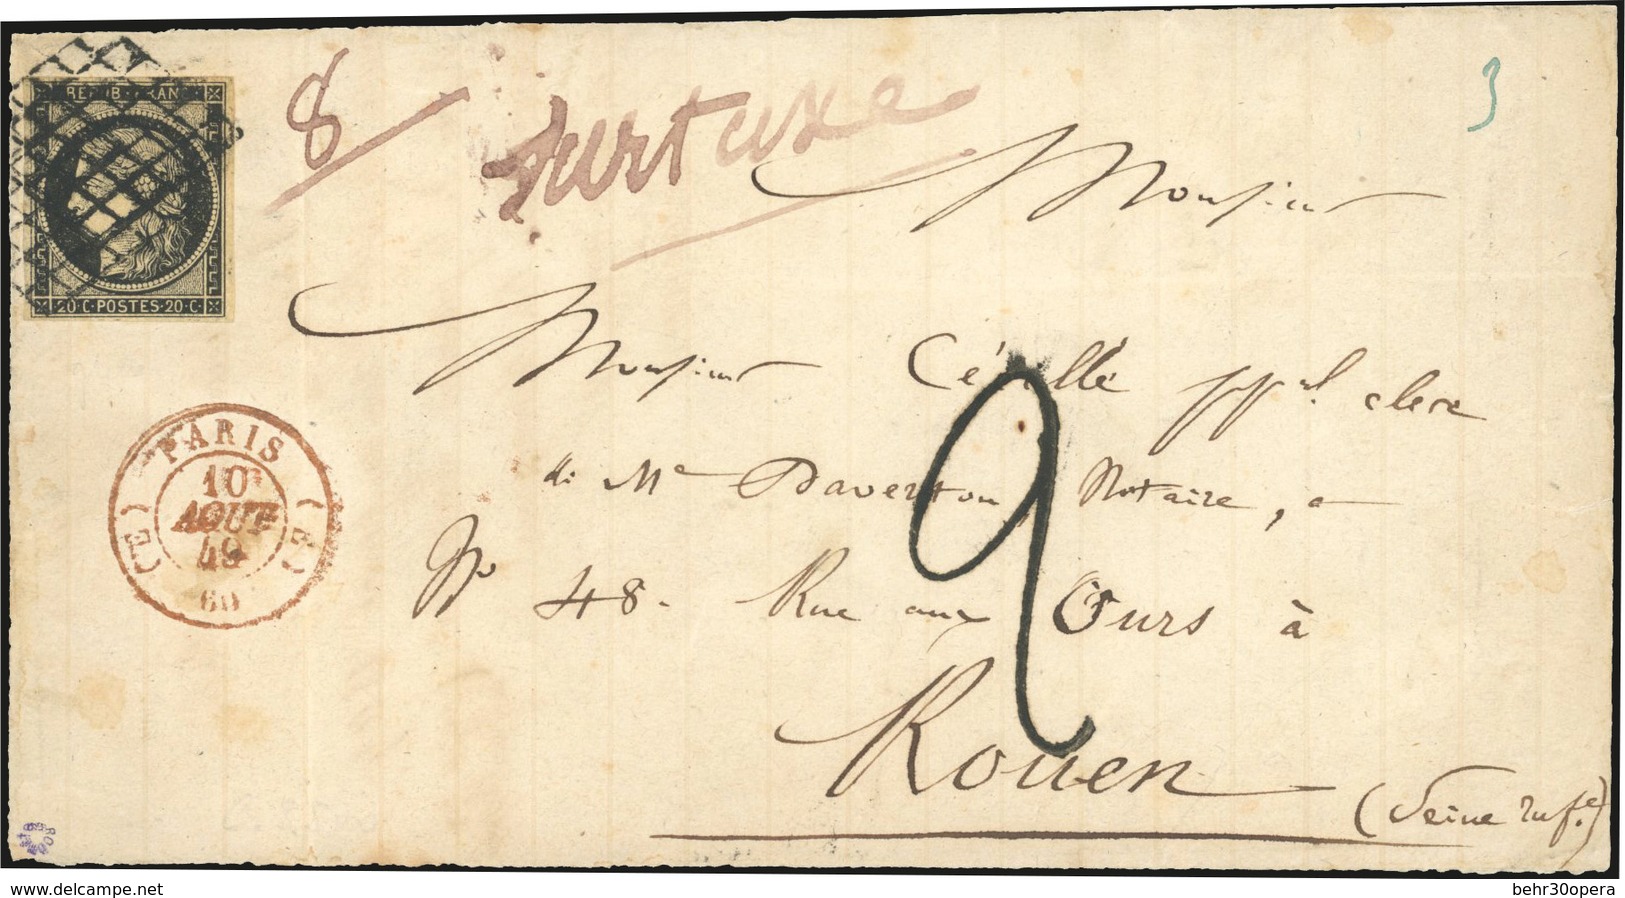 REPUB · FRANC
20 · C · POSTES · 20 · C
8
surtaxe
3
Monsieur
Monsieur Cérillé ppal clerc
de Me Daverton Notaire, a
No 48. Rue aux Ours à
Rouen
(Seine infe.)
2
PARIS
10
AOUT
49
(60)
(E) (E)
www.delcampe.net
behr30opera